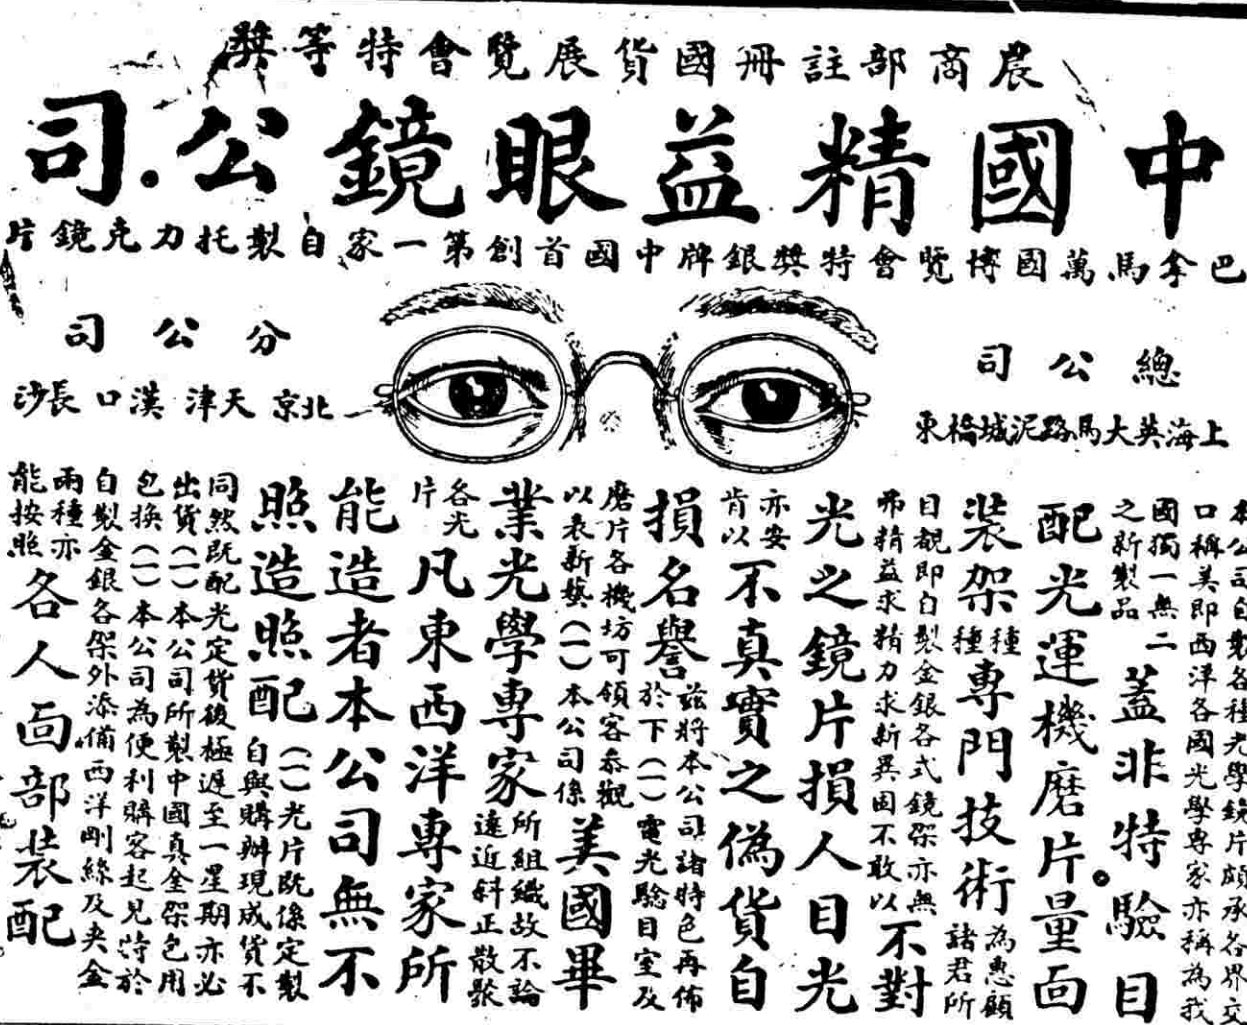 農商部註冊國貨展覽會特等獎
中國精益眼鏡公司
巴拿馬萬國博覽會特獎銀牌中國首創第一家自製托力克鏡片
總公司
上海英大馬路泥城橋東
分公司
北京 天津 漢口 長沙
本公司自製各種光學鏡片頗承各界交
口稱美即西洋各國光學專家亦稱為我
國獨一無二
之新製品
蓋非特驗目
配光運機磨片量面
裝架
種種
專門技術
為惠顧
諸君所
目覩即自製金銀各式鏡架亦無
弗精益求精力求新異固不敢以
不對
光之鏡片損人目光
亦安
肯以
不真實之偽貨自
損名譽
茲將本公司諸特色再佈
於下(一)電光驗目室及
磨片各機坊可領客參觀
以表新藝(一)本公司係
美國畢
業光學專家
所組織故不論
遠近斜正散
各光
片
凡東西洋專家所
能造者本公司無不
照造照配
(一)光片既係定製
自與購辦現成貨不
同然既配光定貨後極遲至一星期亦必
出貨(一)本公司所製中國真金架包用
包換(一)本公司為便利購客起見特於
自製金銀各架外添備西洋剛絲及夾金
兩種亦
能按照
各人面部裝配